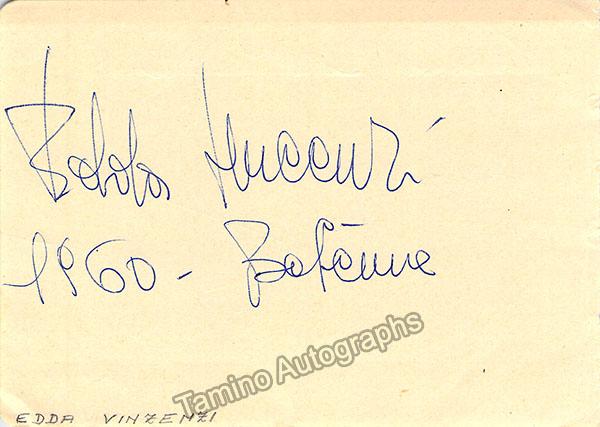 Edda Vincenzi
1960 - Bohème
Tamino Autographs
EDDA VINZENZI